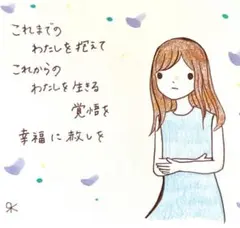 これまでの
わたしを抱えて
これからの
わたしを生きる
覚悟を
幸福に赦しを